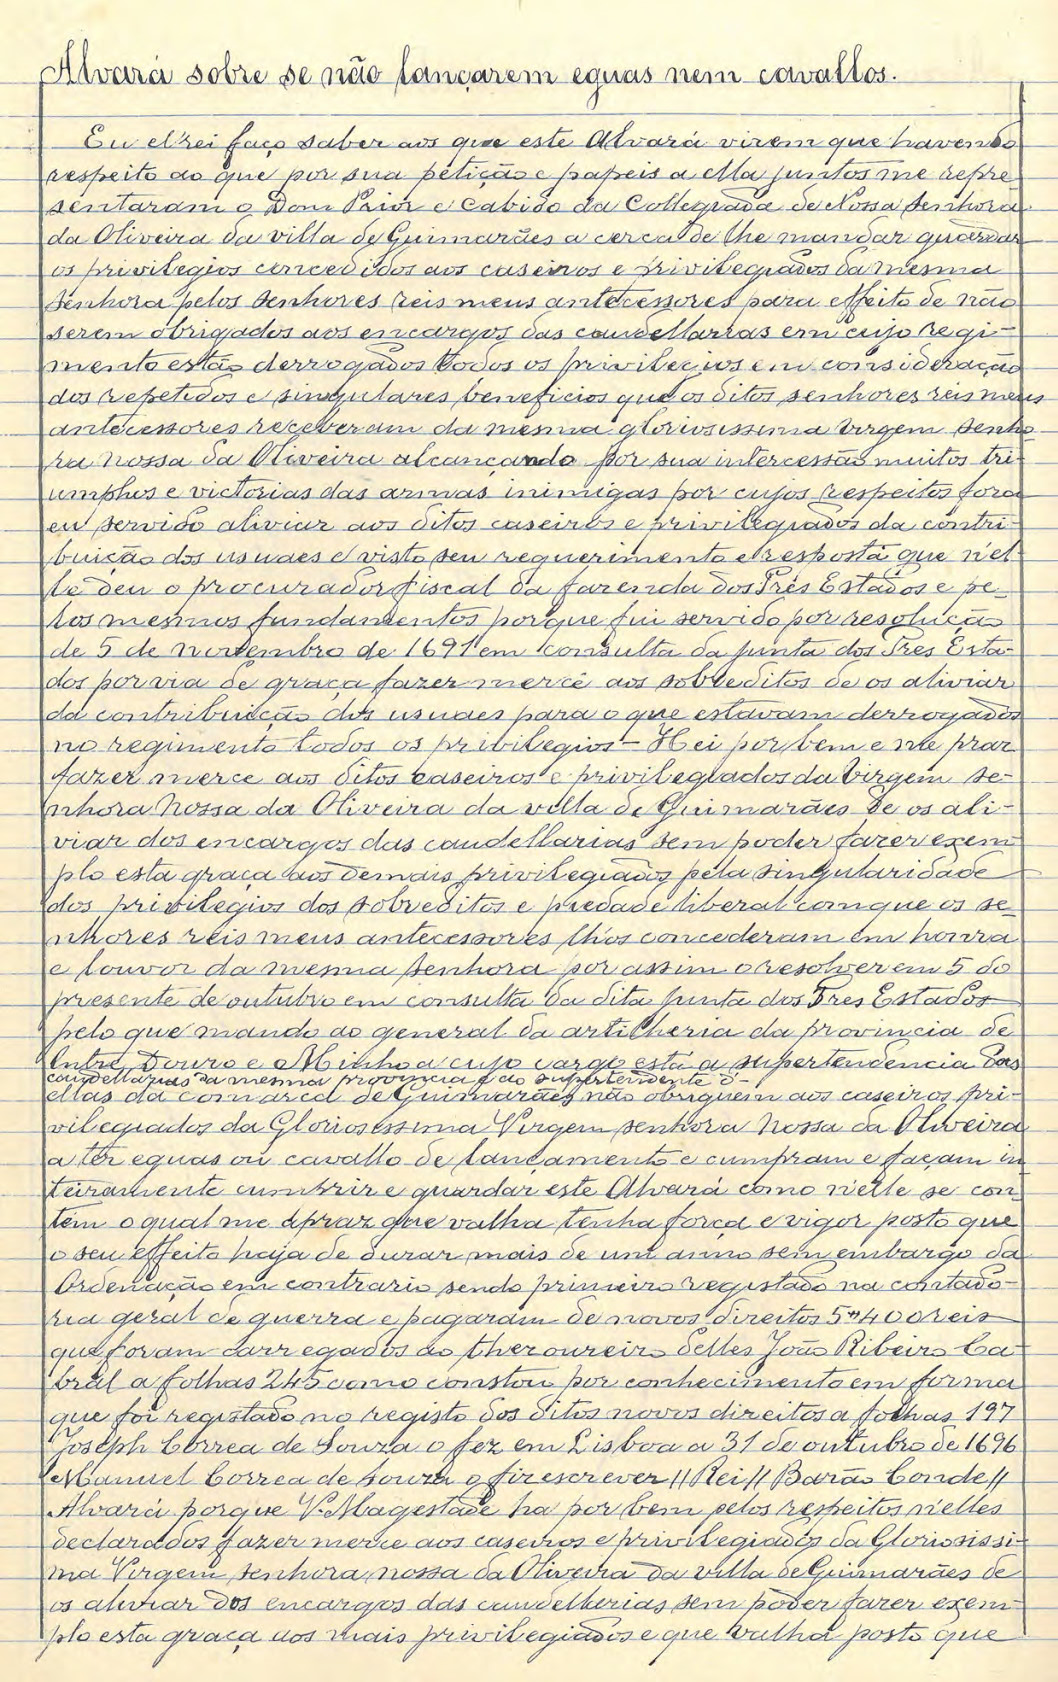 Alvará sobre se não lançarem eguas nem cavallos.
Eu el'rei faço saber aos que este Alvará virem que havendo
respeito ao que por sua petição e papeis a ella juntos me repre-
sentaram o Dom Prior e Cabido da Collegiada de Nossa Senhora
da Oliveira da villa de Guimarães a cerca de lhe mandar guardar
os privilegios concedidos aos caseiros e privilegiados da mesma
Senhora pelos senhores reis meus antecessores para effeito de não
serem obrigados aos encargos das caudellarias em cujo regi-
mento estão derrogados todos os privilegios em consideração
dos repetidos e singulares beneficios que os ditos senhores reis meus
antecessores receberam da mesma gloriosissima Virgem Senho-
ra Nossa da Oliveira alcançando por sua intercessão muitos tri-
umphos e victorias das armas inimigas por cujos respeitos fora
eu servido aliviar aos ditos caseiros e privilegiados da contri-
buição dos usuaes e visto seu requerimento e resposta que n'el-
le deu o procurador fiscal da fazenda dos Três Estados e pe-
los mesmos fundamentos porque fui servido por resolução
de 5 de novembro de 1691 em consulta da junta dos Tres Esta-
dos por via de graça fazer mercê aos sobreditos de os aliviar
da contribuição dos usuaes para o que estavam derrogados
no regimento todos os privilegios - Hei por bem e me praz
fazer merce aos ditos caseiros e privilegiados da Virgem Se-
nhora Nossa da Oliveira da villa de Guimarães de os ali-
viar dos encargos das caudellarias sem poder fazer exem-
plo esta graça aos demais privilegiados pela singularidade
dos privilegios dos sobreditos e piedade liberal com que os se-
nhores reis meus antecessores lh'os concederam em honra
e louvor da mesma Senhora por assim o resolver em 5 do
presente de outubro em consulta da dita junta dos Tres Estados
pelo que mando ao general da artilheria da provincia de
Entre Douro e Minho a cujo cargo está a supertendencia das
caudellarias da mesma provincia e ao supertendente d'-
ellas da comarca de Guimarães não obriguem aos caseiros pri-
vilegiados da Gloriosissima Virgem senhora Nossa da Oliveira
a ter eguas ou cavallo de lançamento e cumpram e façam in-
teiramente cumprir e guardar este Alvará como n'elle se con-
têm o qual me apraz que valha tenha força e vigor posto que
o seu effeito haja de durar mais de um anno sem embargo da
Ordenação em contrario sendo primeiro registado na contado-
ria geral de guerra e pagaram de novos direitos 5"400 reis
que foram carregados ao theroureiro delles João Ribeiro Ca-
bral a folhas 245 como constou por conhecimento em forma
que foi registado no registo dos ditos novos direitos a folhas 197
Joseph Correa de Souza o fez em Lisboa a 31 de outubro de 1696
Manuel Correa de Souza o fiz escrever // Rei // Barão Conde //
Alvará porque V. Magestade ha por bem pelos respeitos n'elles
declarados fazer merce aos caseiros e privilegiados da Gloriosissi-
ma Virgem senhora nossa da Oliveira da villa de Guimarães de
os aliviar dos encargos das caudelherias sem poder fazer exem-
plo esta graça aos mais privilegiados e que valha posto que